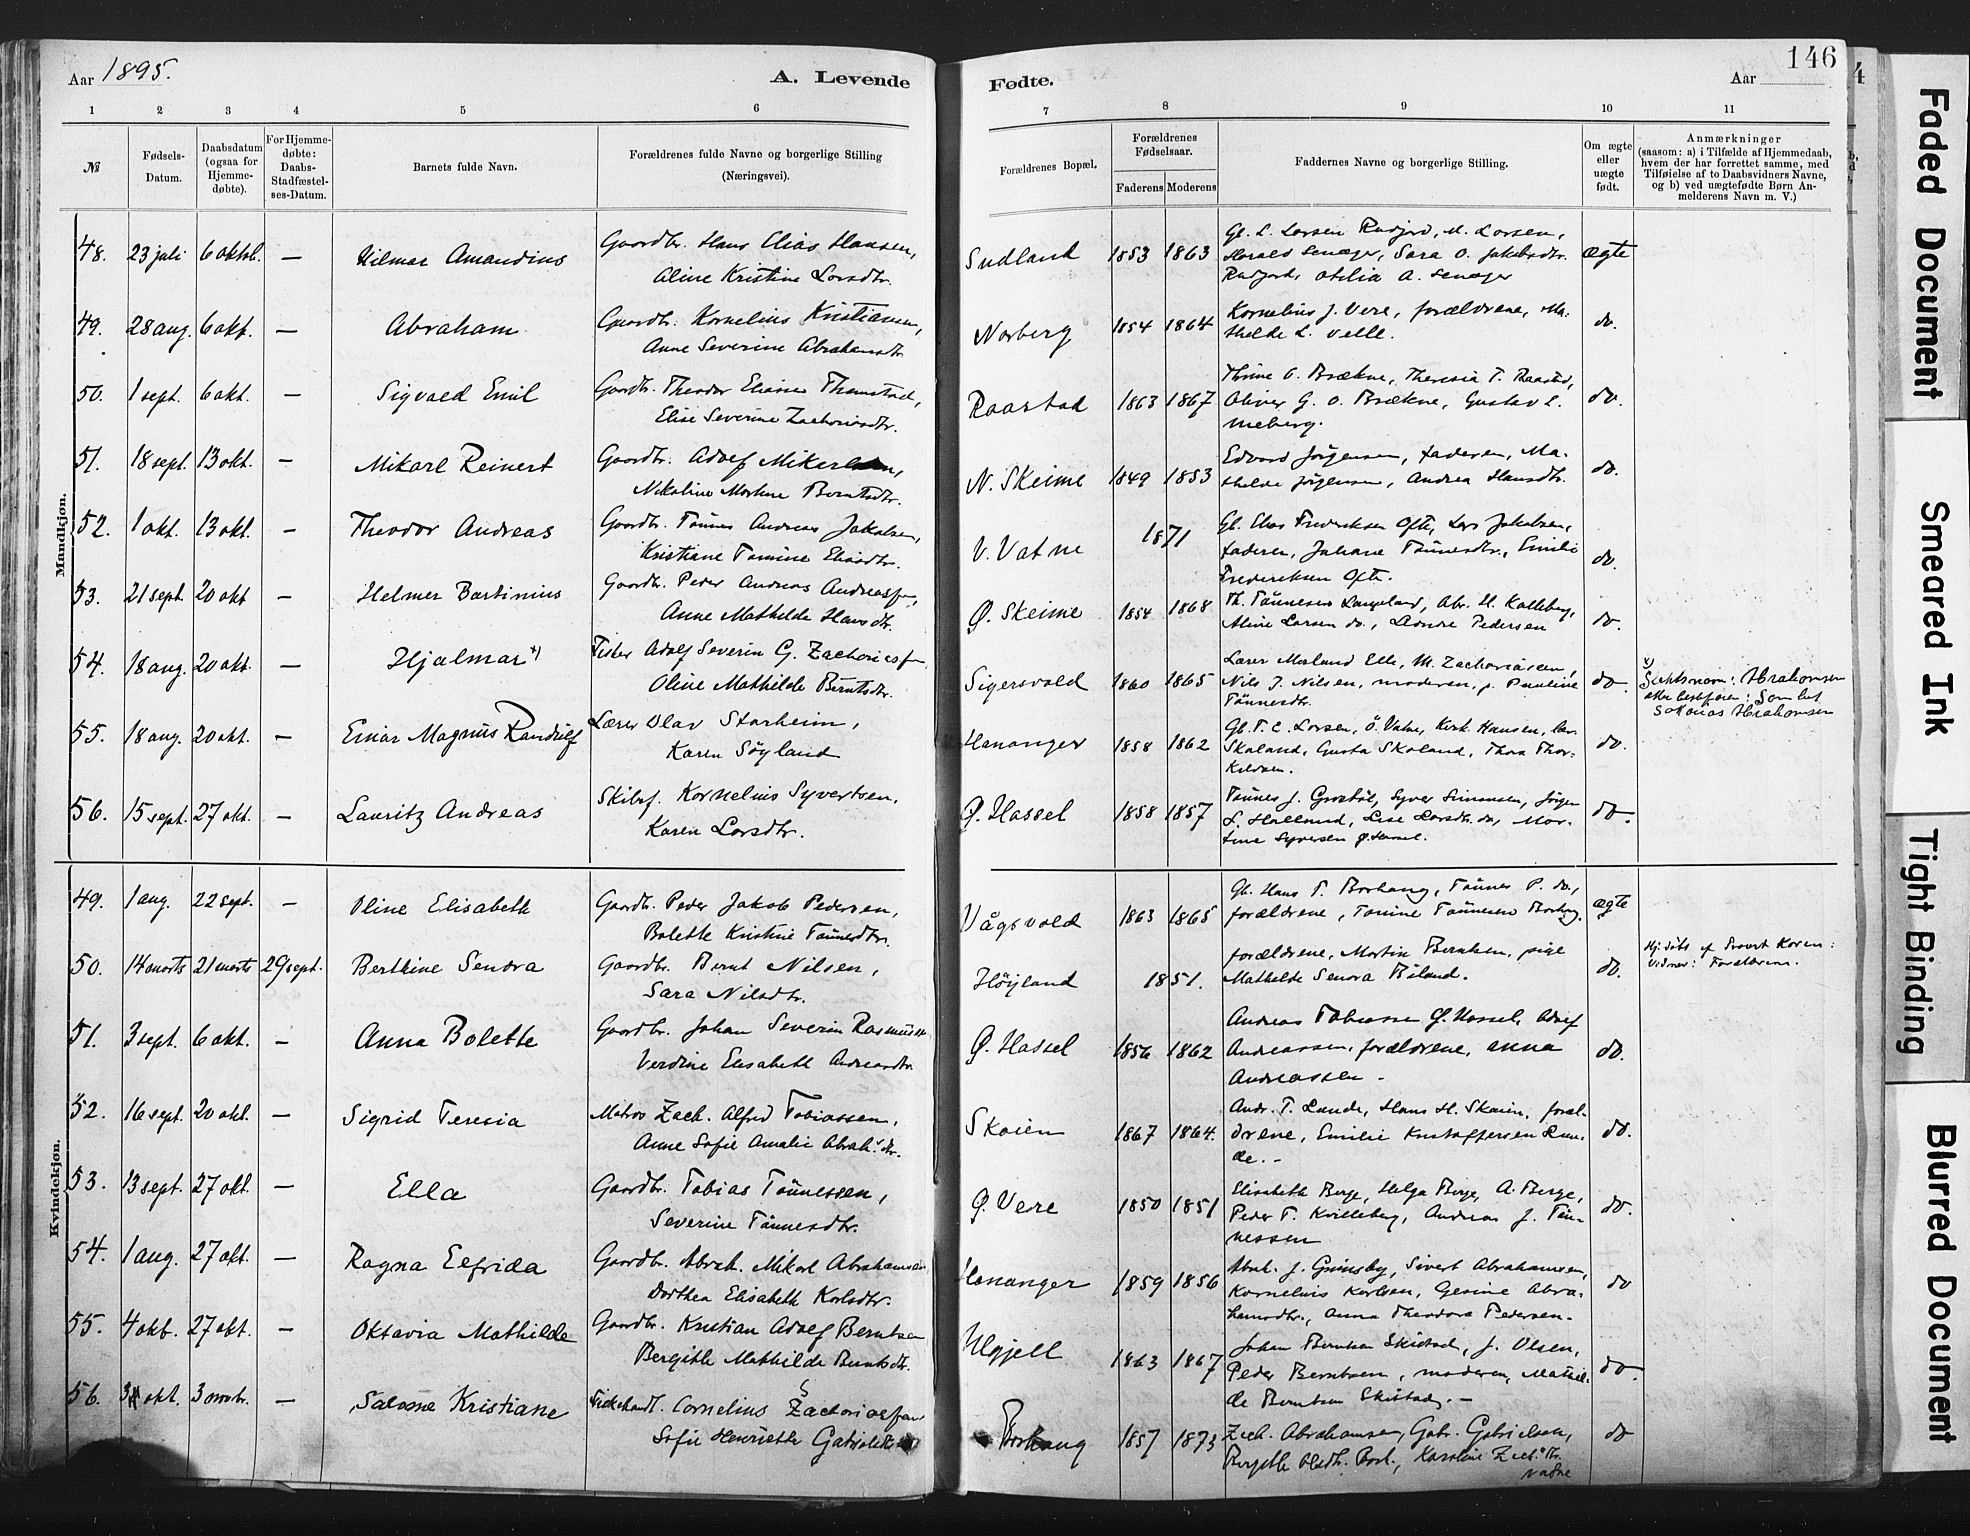 Aar 1895.
A. Levende
Fødte.
Aar
146
1 2 3 4 5 6 7 8 9 10 11
№
Fødsels-
Datum.
Daabsdatum
(ogsaa for
Hjemme-
døbte).
For Hjemme-
døbte:
Daabs-
Stadfæstel-
ses-Datum.
Barnets fulde Navn.
Forældrenes fulde Navne og borgerlige Stilling
(Næringsvei).
Forældrenes Bopæl.
Forældrenes
Fødselsaar.
Faderens Moderens
Faddernes Navne og borgerlige Stilling.
Om ægte
eller
uægte
født.
Anmærkninger
(saasom: a) i Tilfælde af Hjemmedaab,
hvem der har forrettet samme, med
Tilføielse af to Daabsvidners Navne,
og b) ved uægtefødte Børn An-
melderens Navn m. V.)
Mandkjøn.
48. 23 juli 6 oktob. — Hilmar Amandius
Gaardbr. Hans Elias Hansen,
Aline Kristine Larsdtr.
Sudland 1853 1863
Gb. L. Larsen Rudjord, M. Larsen,
Sara O. Jakobsdtr.
ægte
49. 28 aug. 6 okt. — Abraham
Gaardbr. Kornelius Kristiansen,
Anne Severine Abrahamsdtr.
Norberg 1854 1864
Kornelius J. Vere, forældrene, Ma-
thilde L. Velle.
do.
50. 1 sept. 6 okt. — Sigvald Emil
Gaardbr. Theodor Eliasen Thumstad,
Elise Severine Zachariasdtr.
Raastad 1863 1867
Thrine O. Brækne, Theresia T. Raastad,
Oliver G. O. Brækne, Gustav L.
Meberg.
do.
51. 18 sept. 13 okt. — Mikael Reinert
Gaardbr. Adolf
Nikoline Marthine Berntsdtr.
N. Skeime 1849 1853
Edvard Jørgensen, faderen, Ma-
thilde Jørgensen, Andrea Hansdtr.
do.
52. 1 okt. 13 okt. — Theodor Andreas
Gaardbr. Tönnes Andreas Jakobsen,
Kristiane Tomine Eliasdtr.
V. Vatne 1871
Gb. Elias Frederiksen Ofte, Lars Jakobsen,
faderen, Johane Tönnesdtr., Emilie
Frederiksen Ofte.
do.
53. 21 sept. 20 okt — Helmer Bartinius
Gaardbr. Peder Andreas Andreasse,
Anne Mathilde Hansdtr.
Ø. Skeime 1854 1868
Th. Tönnesen Langeland, Abr. H. Kalleberg,
Aline Larsen do., Leonora Pedersen
do.
54. 18 aug. 20 okt. — Hjalmar *)
Fisker Adolf Severin G. Zachariasse
Oline Mathilde Berntsdtr.
Sigersvold 1860 1865
Lærer Morland Elle, M. Zachariassen,
Nils J. Nilsen, moderen, p. Pauline
Tönnesdtr.
do.
*) Slektsnavn: Abrahamsen
etter bestefaren:
Abrahamsen
55. 18 aug. 20 okt. — Einar Magnus Randulf
Lærer Olav Starheim,
Karen Søyland
Hananger 1858 1862
Gb. T. C. Larsen, Ö. Vatne, Kirk. Hansen, lær.
Skoland, Gusta Skoland, Thea Thor-
kildsen.
do.
56. 15 sept. 27 okt. — Lauritz Andreas
Skibsf. Kornelius Syvertsen,
Karen Larsdtr.
Ø. Hassel 1858 1857
Tönnes J. Grostøl, Syver Simonsen, Jørgen
L. Hallund, Lise Larsdtr. do, Mar-
tine Syversen Ø. Hassel.
do.
Kvindekjøn.
49. 1 aug. 22 sept. — Oline Elisabeth
Gaardbr. Peder Jakob Pedersen,
Bolette Kristine Tönnesdtr.
Vågsvold 1863 1865
Gb. Hans T. Borhaug, Tönnes P. do.,
forældrene, Tomine Tönnesen Borhaug.
ægte
50. 14 marts 21 marts 29 sept. Berthine Senora
Gaardbr. Bernt Nilsen,
Sara Nilsdtr.
Höyland 1851.
forældrene, Martin Berntsen, pige
Mathilde Senora Biland.
do.
Hj. døbt af Provst Koren:
Vidner: Forældrene.
51. 3 sept. 6 okt. — Anna Bolette
Gaardbr. Johan Severin Rasmussen
Verdine Elisabeth Andreasdtr.
Ø. Hassel 1856 1862
Andreas Tobiassen Ø. Hassel, Adolf
Andreassen, forældrene, Anna
Andreassen -
do.
52. 16 sept. 20 okt. — Sigrid Teresia
Matros Zach. Alfred Tobiassen,
Anne Sofie Amalie Abrah.dtr.
Skoien 1867 1864.
Andr. T. Lunde, Hans H. Skoien, foræl-
drene, Emilie Kristoffersen Lun-
de. -
do.
53. 13 sept. 27 okt. — Ella
Gaardbr. Tobias Tönnessen,
Severine Tönnesdtr.
Ø. Vere 1850 1851
Elisabeth Berge, Helga Berge, A. Berge,
Peder T. Kvilleberg, Andreas J. Tön-
nessen
do.
54. 1 aug. 27 okt. — Ragna Elfrida
Gaardbr. Abrah. Mikal Abrahamsen,
Dorthea Elisabeth Karlsdtr.
Hananger 1859 1856
Abrah. J. Grimsby, Sivert Abrahamsen,
Kornelius Karlsen, Gesine Abra-
hamsdtr., Anna Theodora Pedersen.
do
55. 4 okt. 27 okt. — Oktavia Mathilde
Gaardbr. Kristian Adolf Berntsen
Bergitte Mathilde Berntsdtr.
Ulgjell 1863 1867
Johan Berntsen Skistad, J. Olsen,
Peder Berntsen, moderen, Mathil-
de Berntsen Skistad. -
do.
56. 3 okt. 3 novbr. — Salome Kristiane
Fiskehandl. Cornelius Zachariassen
Sofie Henriette Gabrielsd
Borhaug 1857 1873
Zach. Abrahamsen, Gabr. Gabrielsen,
Bergitte Olsdtr. Borh., Karoline Zach.dtr.
Vatne
do
4
Faded Document
Smeared Ink
Tight Binding
Blurred Document